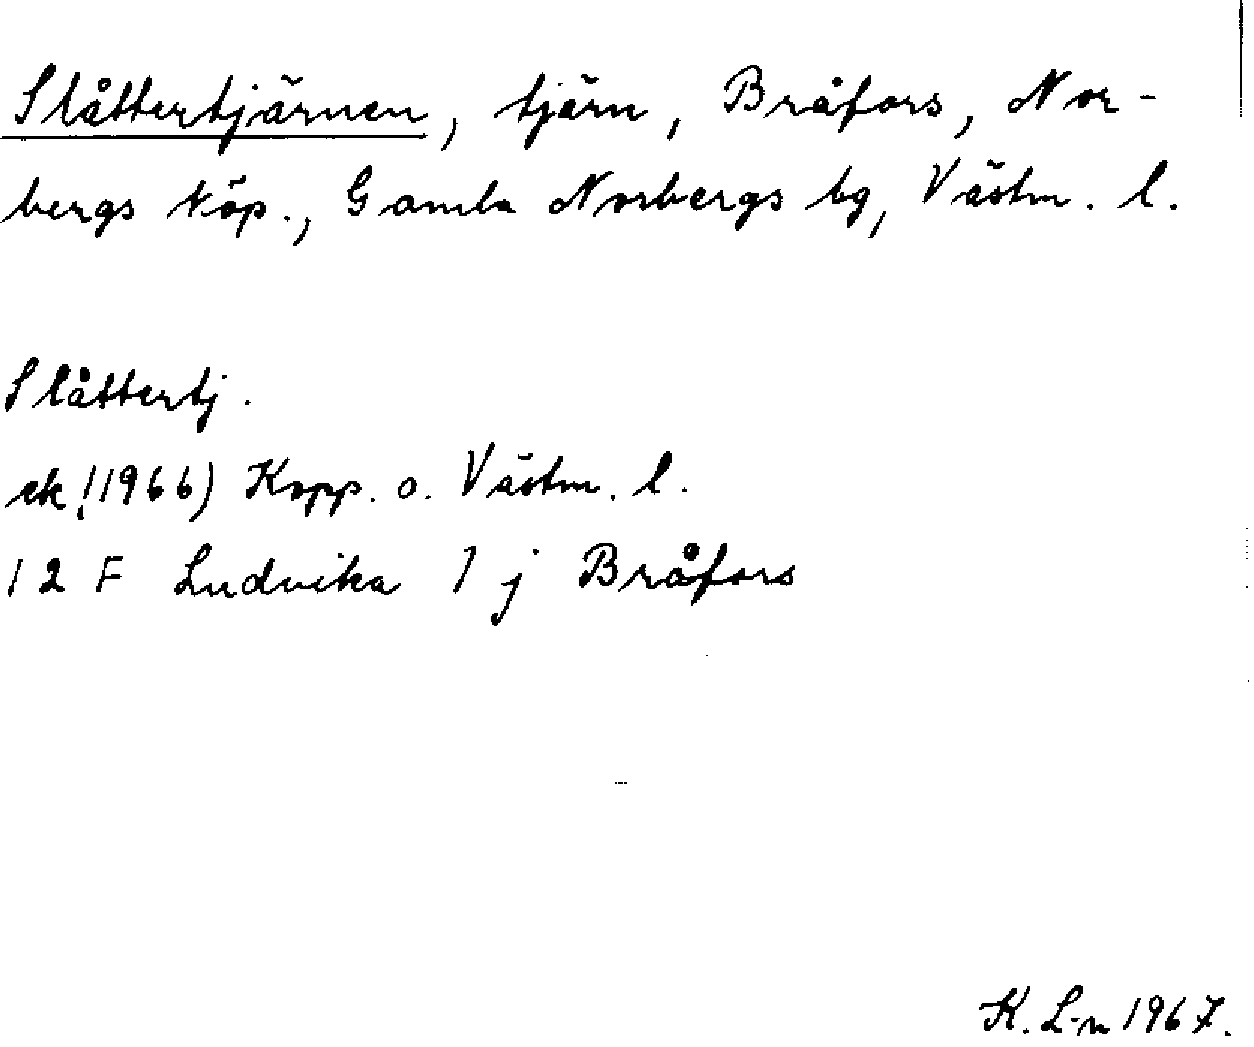 Slåttertjärnen, tjärn, Bråfors, Nor-
bergs köp., Gamla Norbergs bg, Västm. l.
Slåttertj.
ek (1966) Kopp. o. Västm. l.
12 F Ludvika 1 j Bråfors
K. L-n 1967.